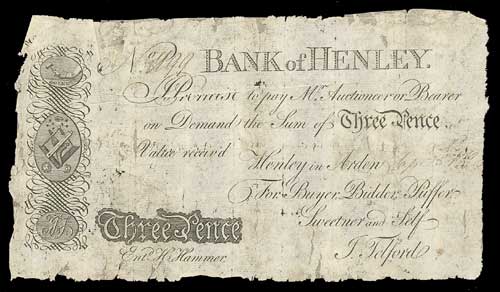 No
BANK of HENLEY.
I Promise to pay Mr. Auctioneer or Bearer
on Demand the Sum of Three Pence
Value receiv'd
Henley in Arden
For Buyer, Bidder, Puffer
Sweetner and Self
Three Pence
Entd. H. Hammer.
J. Telford